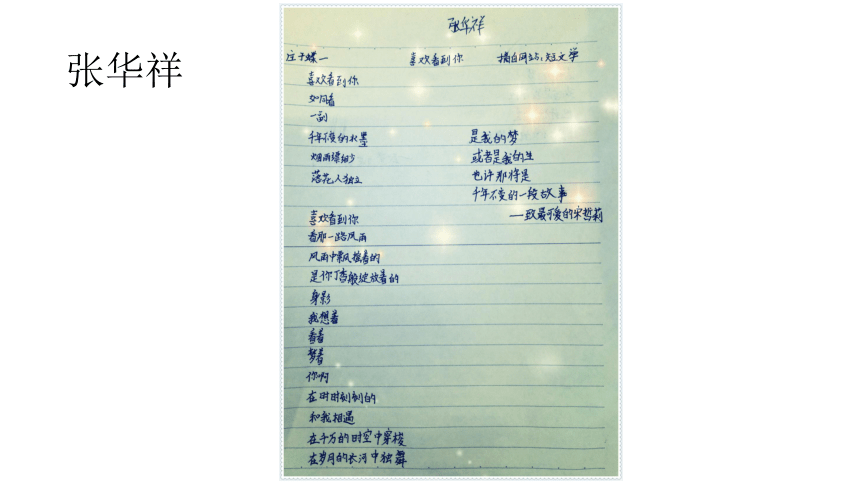 张华祥
张华祥
庄子蝶一 喜欢看到你 摘自网站：短文学
喜欢看到你
如同看
一副
千年不变的水墨
烟雨缥缈
落花人独立
喜欢看到你
看那一路风雨
风雨中飘摇着的
是你丁香般绽放着的
身影
我想着
看着
梦着
你啊
在时时刻刻的
和我相遇
在千万的时空中穿梭
在岁月的长河中独舞
是我的梦
或者是我的生
也许那将是
千年不变的一段故事
—致最可爱的宋哲莉